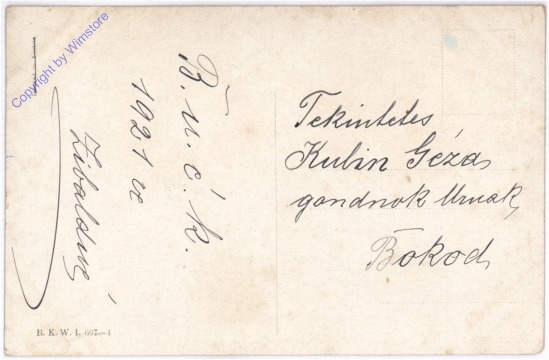 B. u. é. k.
1921 re
Zibaldné
Tekintetes
Kubin Géza
gondnok Urnak,
Bokod
B. K. W. I. 607-4
Copyright by Wimstore